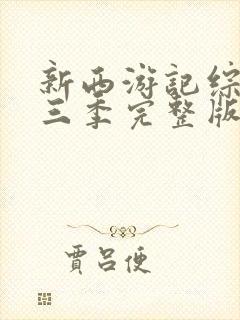 新西游記綜
三季完整版
賈呂便